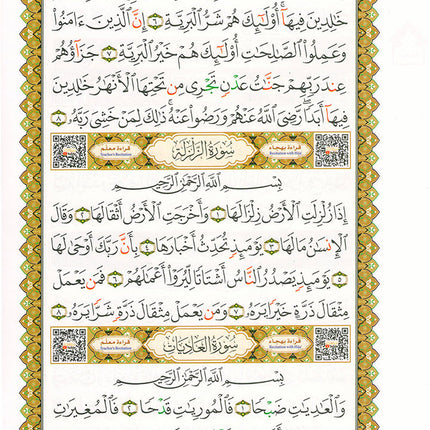 خَـٰلِدِينَ فِيهَآ أُو۟لَـٰٓئِكَ هُمْ شَرُّ ٱلْبَرِيَّةِ ٦ إِنَّ ٱلَّذِينَ ءَامَنُوا۟
وَعَمِلُوا۟ ٱلصَّـٰلِحَـٰتِ أُو۟لَـٰٓئِكَ هُمْ خَيْرُ ٱلْبَرِيَّةِ ٧ جَزَآؤُهُمْ
عِندَ رَبِّهِمْ جَنَّـٰتُ عَدْنٍ تَجْرِى مِن تَحْتِهَا ٱلْأَنْهَـٰرُ خَـٰلِدِينَ
فِيهَآ أَبَدًا رَّضِىَ ٱللَّهُ عَنْهُمْ وَرَضُوا۟ عَنْهُ ذَٰلِكَ لِمَنْ خَشِىَ رَبَّهُۥ ٨
قراءة معلم
Teacher's Recitation
سُورَةُ الزَّلْزَلَةِ
قراءة بهجاء
Recitation with Hijaa
بِسْمِ ٱللَّهِ ٱلرَّحْمَـٰنِ ٱلرَّحِيمِ
إِذَا زُلْزِلَتِ ٱلْأَرْضُ زِلْزَالَهَا ١ وَأَخْرَجَتِ ٱلْأَرْضُ أَثْقَالَهَا ٢ وَقَالَ
ٱلْإِنسَـٰنُ مَا لَهَا ٣ يَوْمَئِذٍ تُحَدِّثُ أَخْبَارَهَا ٤ بِأَنَّ رَبَّكَ أَوْحَىٰ لَهَا
٥ يَوْمَئِذٍ يَصْدُرُ ٱلنَّاسُ أَشْتَاتًا لِّيُرَوْا۟ أَعْمَـٰلَهُمْ ٦ فَمَن يَعْمَلْ
مِثْقَالَ ذَرَّةٍ خَيْرًا يَرَهُۥ ٧ وَمَن يَعْمَلْ مِثْقَالَ ذَرَّةٍ شَرًّا يَرَهُۥ ٨
قراءة معلم
Teacher's Recitation
سُورَةُ العَادِيَاتِ
قراءة بهجاء
Recitation with Hijaa
بِسْمِ ٱللَّهِ ٱلرَّحْمَـٰنِ ٱلرَّحِيمِ
وَٱلْعَـٰدِيَـٰتِ ضَبْحًا ١ فَٱلْمُورِيَـٰتِ قَدْحًا ٢ فَٱلْمُغِيرَٰتِ